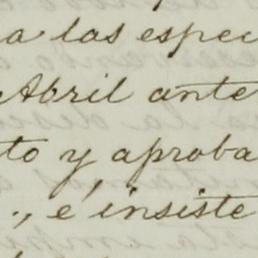 a las espec
Abril ante
to y aproba
., e insiste